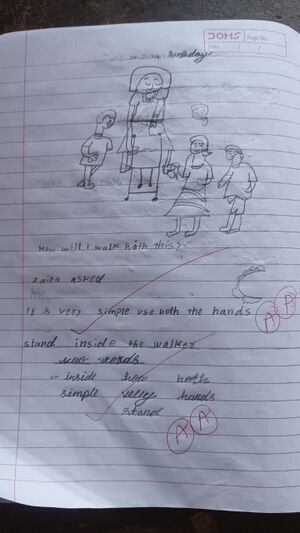 DOMS
Page No.
Date / /
Birthday
How will I walk with this?
zaira asked
It is very simple use both the hands
A A
stand inside the walker
new words
inside how both
simple very hands
stand
A A